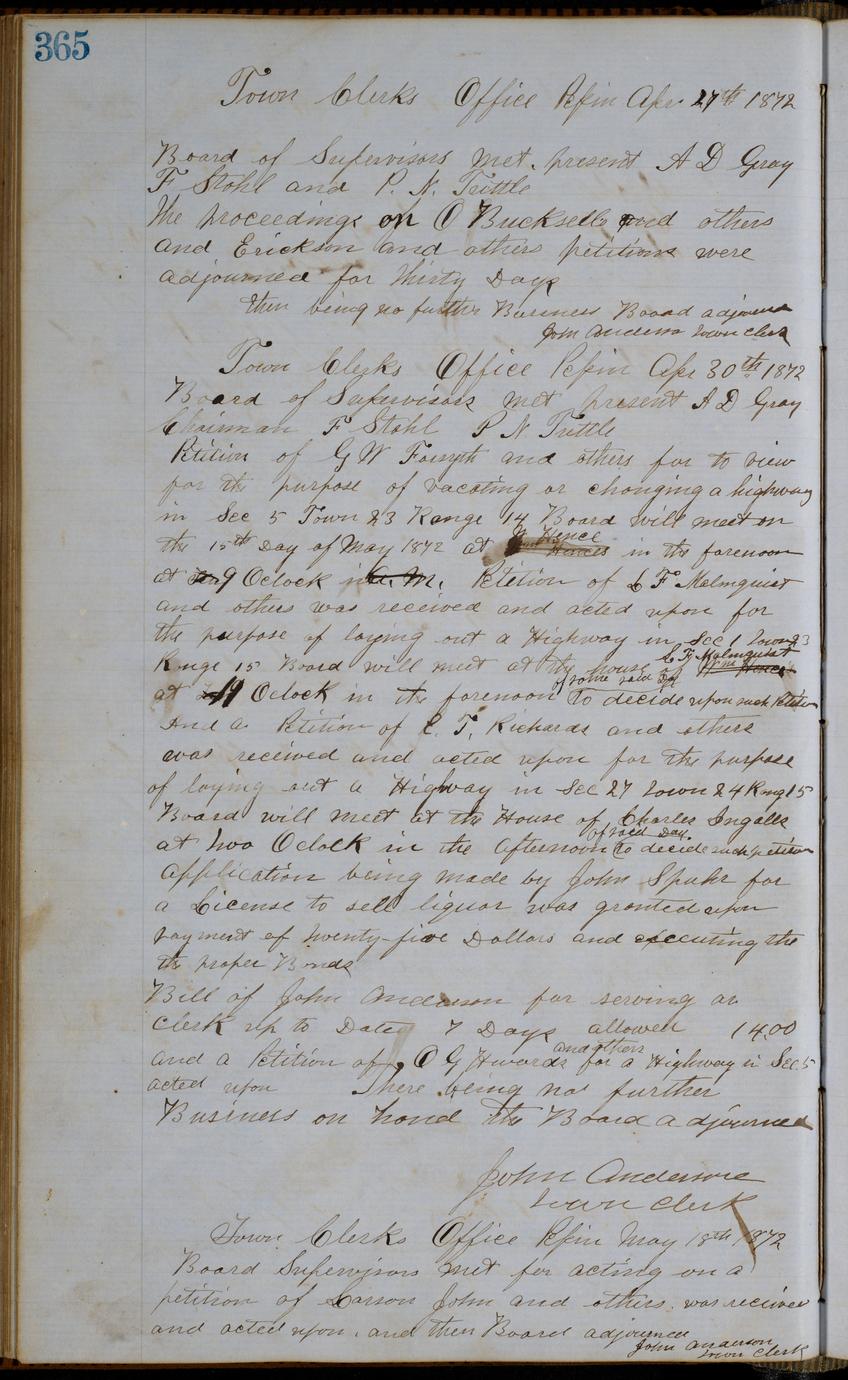 365
Town Clerks Office Pepin Apr 27th 1872
Board of Supervisors met. present A D Gray
F Stohl and P. N. Tuttle
the proceedings on O Bucksell and others
and Erickson and others petitions were
adjourned for thirty Days
then being no further Business Board adjourned
John Anderson Town Clerk
Town Clerks Office Pepin Apr 30th 1872
Board of Supervisors met present A D Gray
Chairman F Stohl P N Tuttle
Petition of G W Forsyth and others for to view
for the purpose of vacating or changing a highway
in Sec 5 Town 23 Range 14 Board will meet on
the 15th Day of May 1872 at Hence in the forenoon
at 9 Oclock in A.M. Petition of C F Malmquist
and others was received and acted upon for
the purpose of laying out a Highway in Sec 1 Town 23
Range 15 Board will meet at the house of C F Malmquist
at 11 Oclock in the forenoon of some said Day to decide upon such Petition
And a Petition of C. T. Richards and others
was received and acted upon for the purpose
of laying out a Highway in Sec 27 Town 24 Rang 15
Board will meet at the House of Charles Ingalls
at two Oclock in the afternoon of said Day. to decide such petition
Application being made by John Spuhr for
a License to sell liquor was granted upon
payment of twenty-five Dollars and executing the
the proper Bonds
Bill of John Anderson for serving as
Clerk up to Date 7 Days allowed 14.00
and a Petition of O G and others for a Highway in Sec 5
acted upon There being no further
Business on hand the Board adjourned
John Anderson
Town Clerk
Town Clerks Office Pepin May 18th 1872
Board Supervisors met for acting on a
petition of Larson John and others was received
and acted upon. and then Board adjourned
John Anderson
Town Clerk